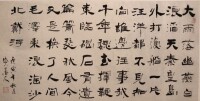 大雨落幽燕白
浪滔天秦皇島
外打魚船一片
汪洋都不見知
向誰邊往事越
千年魏武揮鞭
東臨碣石有遺
篇蕭瑟秋風今
又是換了人間
毛主席浪淘沙
北戴河